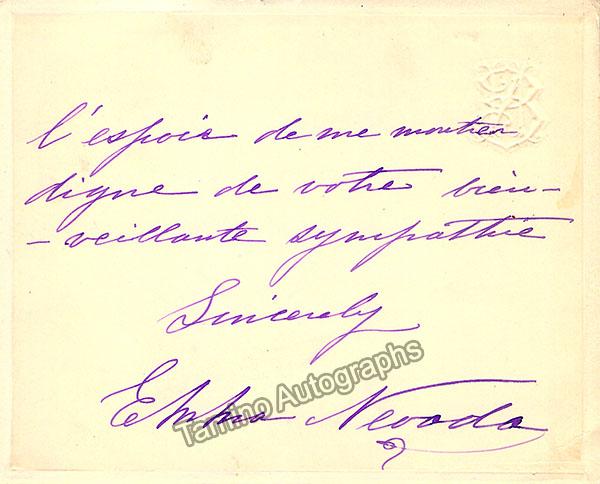 l'espoir de me montrer
digne de votre bien-
-veillante sympathie
Sincerely
Emma Nevada
Tamino Autographs